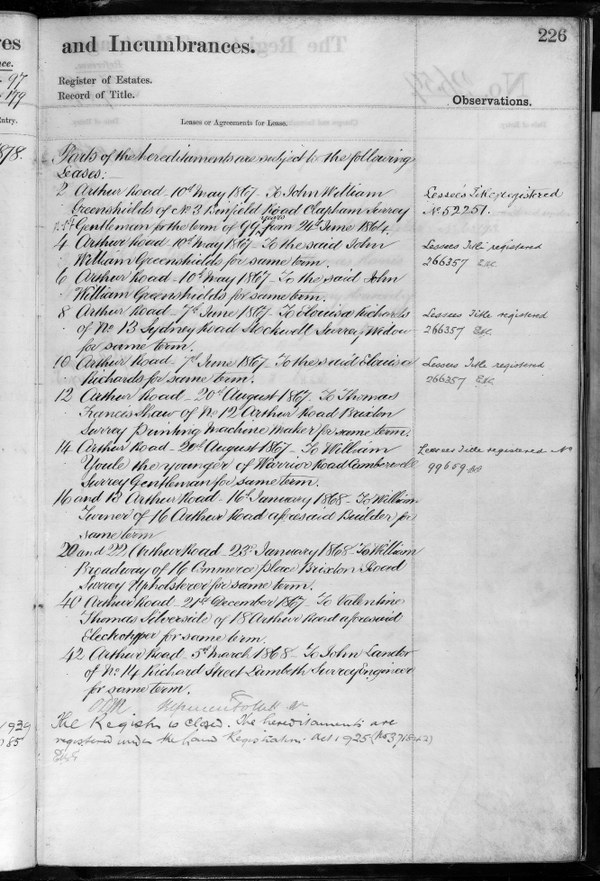 res
and Incumbrances.
226
Register of Estates.
Record of Title.
Observations.
Entry.
Leases or Agreements for Lease.
1878.
Parts of the hereditaments are subject to the following
Leases:—
2 Arthur Road 10th May 1867. To John William
Greenshields of No 3 Binfield Road Clapham Surrey
Gentleman for the term of 99 years from 24th June 1864.
Lessee's Title registered
No 52251.
4 Arthur Road 10th May 1867 To the said John
William Greenshields for same term.
Lessees Title registered
266357
6 Arthur Road - 10th May 1867 - To the said John
William Greenshields for same term.
8 Arthur Road - 7th June 1867 - To Louisa Richards
of No 13 Sydney Road Stockwell Surrey Widow
for same term.
Lessees Title registered
266357
10 Arthur Road - 7th June 1867. To the said Louisa
Richards for same term.
Lessees Title registered
266357
12 Arthur Road - 20th August 1867. To Thomas
Francis Shaw of No 12 Arthur Road Brixton
Surrey Printing Machine Maker for same term.
14 Arthur Road - 20th August 1867 - To William
Youle the younger of Warrior Road Camberwell
Surrey Gentleman for same term.
Lessees Title registered No
99609
16 and 18 Arthur Road - 16th January 1868 - To William
Turner of 16 Arthur Road aforesaid Builder for
same term
20 and 22 Arthur Road - 23rd January 1868 To William
Broadway of 16 Commerce Place Brixton Road
Surrey Upholsterer for same term.
40 Arthur Road - 21st December 1867 - To Valentine
Thomas Silverside of 18 Arthur Road aforesaid
for same term.
42 Arthur Road - 5th March 1868 - To John Lander
of No 14 Richard Street Lambeth Surrey Engineer
for same term.
The Register is closed. The hereditaments are
registered under the Land Registration Act 1925